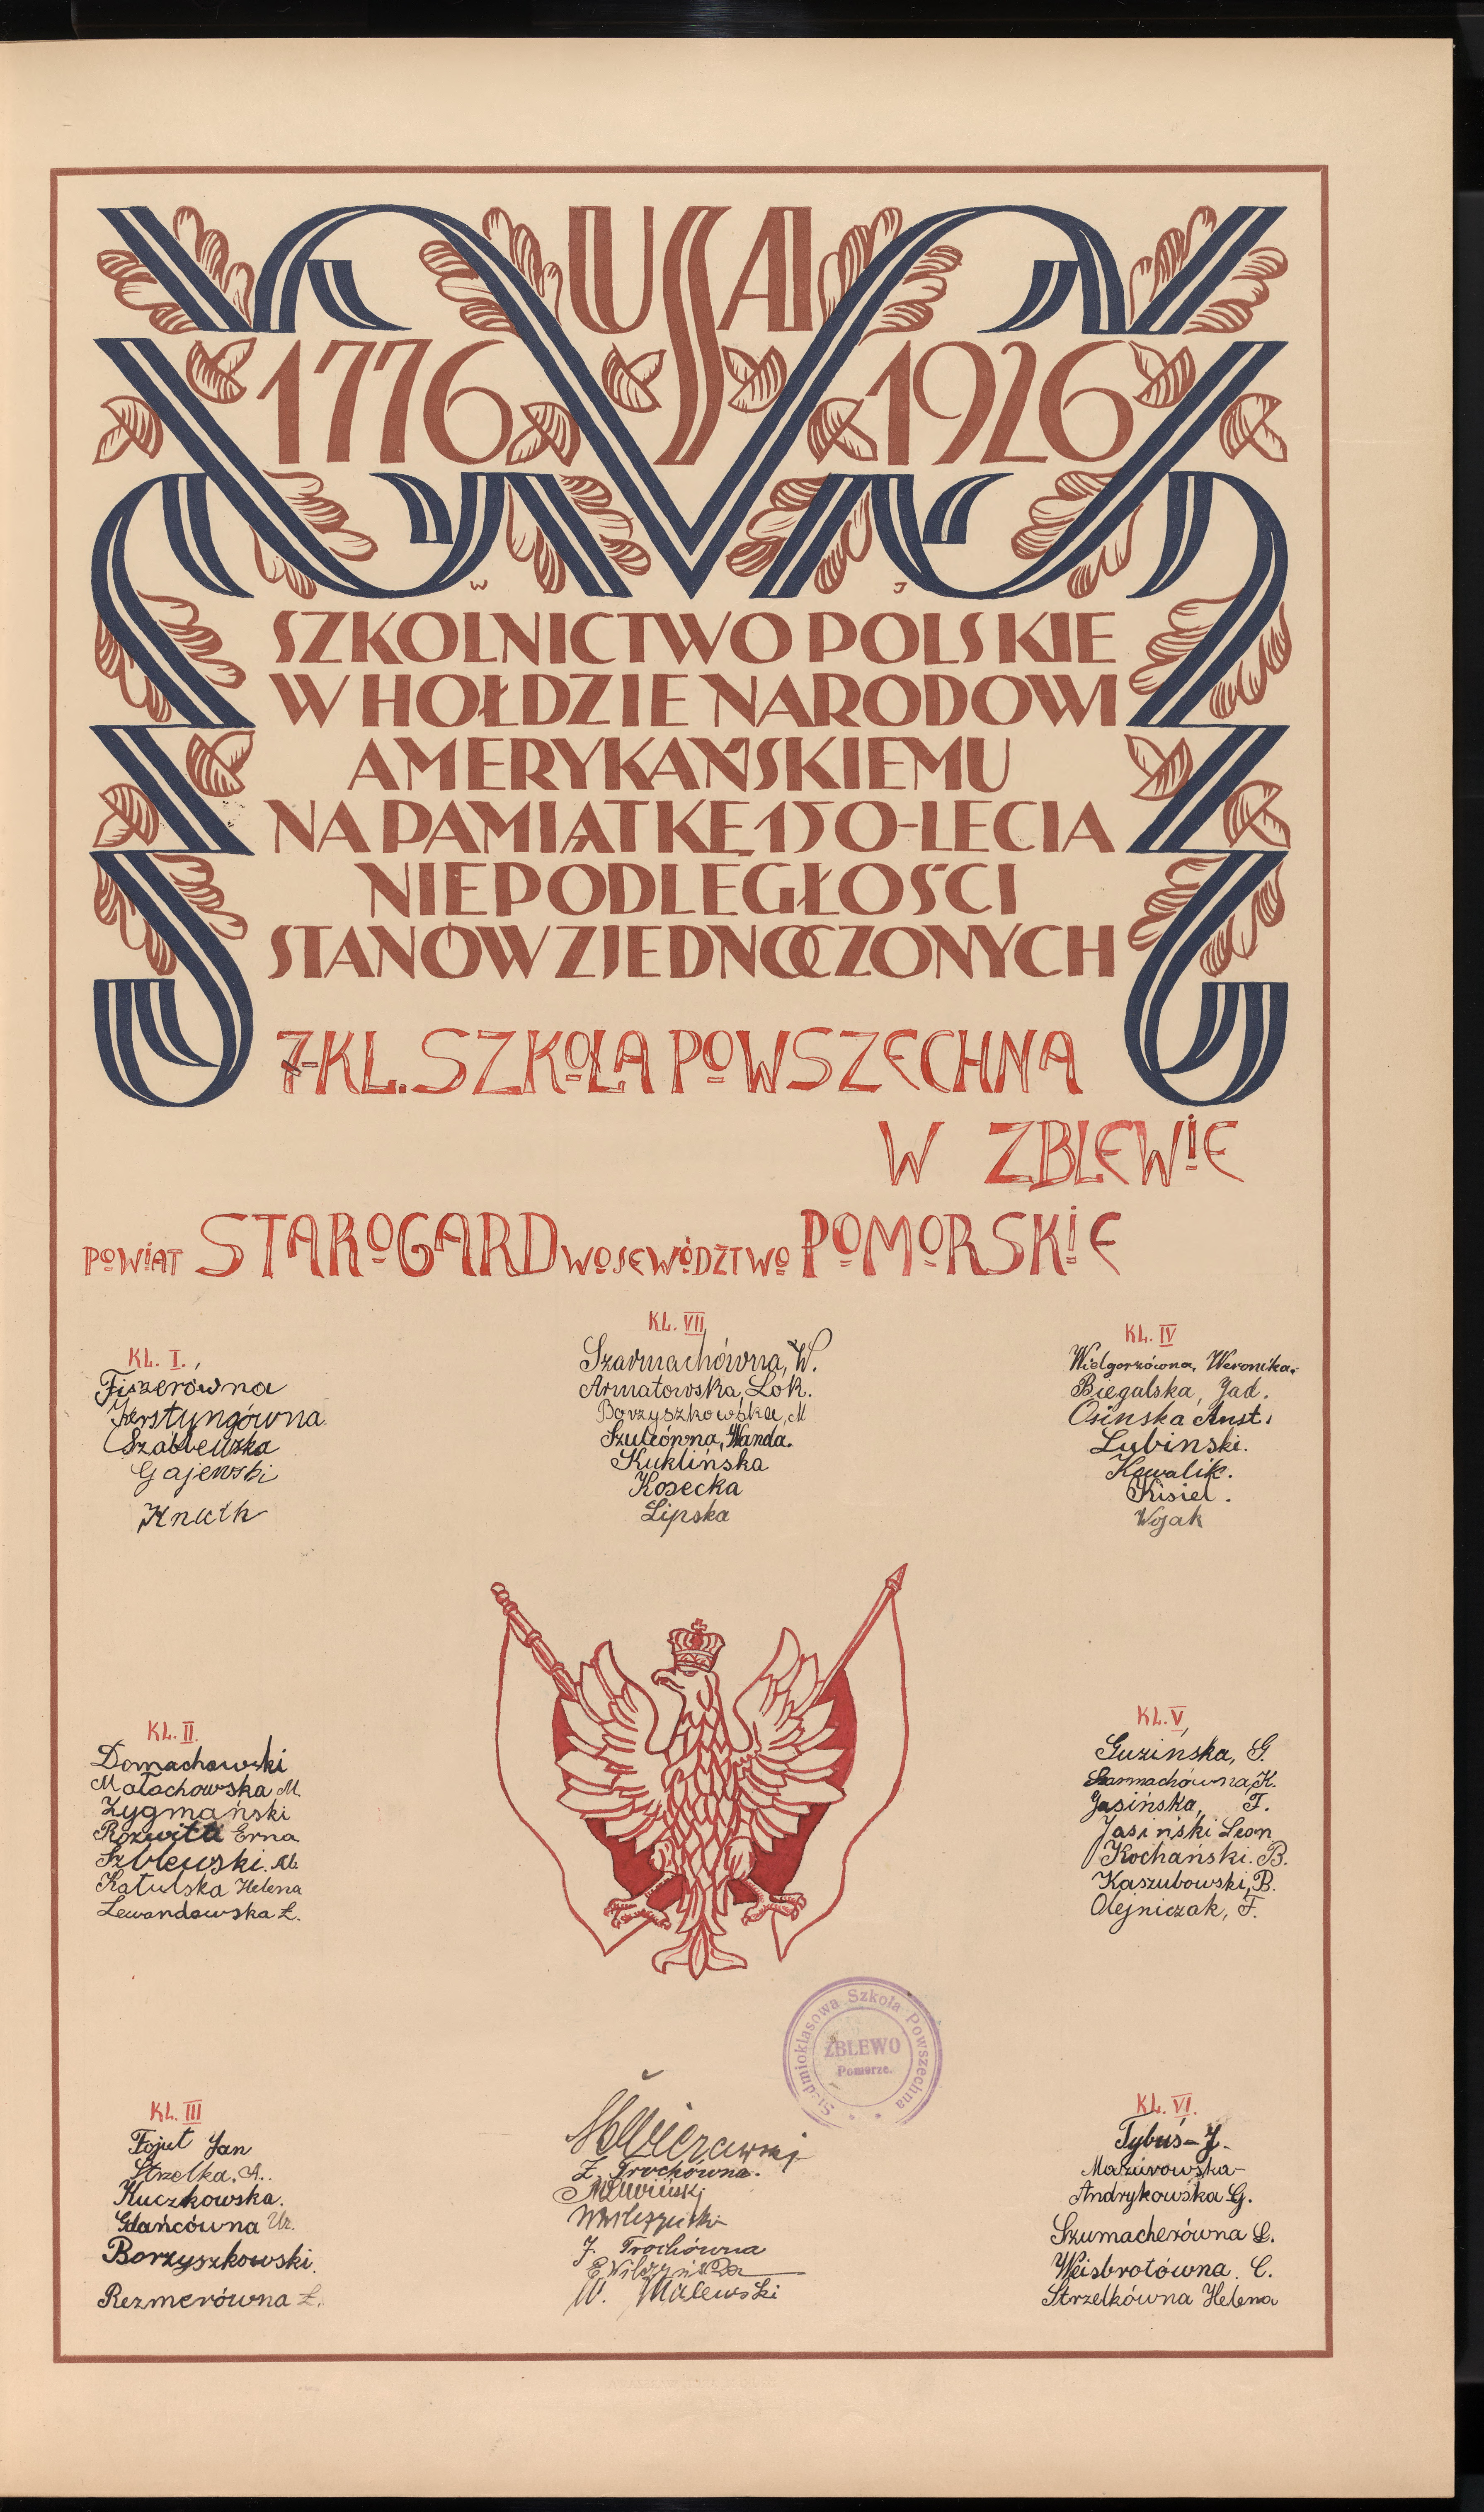 USA
1776 1926
W J
SZKOLNICTWO POLSKIE
W HOŁDZIE NARODOWI
AMERYKAŃSKIEMU
NA PAMIĄTKĘ 150-LECIA
NIEPODLEGŁOŚCI
STANÓW ZJEDNOCZONYCH
7-KL. SZKOŁA POWSZECHNA
W ZBLEWIE
POWIAT STAROGARD WOJEWÓDZTWO POMORSKIE
KL. I.
Fiszerówna
Kerstyngówna
Gajewski
Knuth
KL. VII
Szarmachówna, W.
Armatowska, Lok.
Borzyszkowska, M
Szulcówna, Wanda.
Kuklińska
Kosecka
Lipska
KL. IV
Wielgorzówna, Weronika.
Biegalska, Jad.
Osinska Anst.
Lubinski.
Kowalik.
Kisiel.
Wojak
KL. II.
Domachowski
Małachowska M.
Zygmański
Erna
Katulska Helena
Lewandowska Ł.
KL. V
Guzińska, G.
Szarmachówna, K.
Jasińska, F.
Jasiński Leon
Kochański. B.
Kaszubowski, B.
Olejniczak, F.
Siedmioklasowa Szkoła Powszechna
ZBLEWO
Pomorze.
KL. III
Fojut Jan
Strzelka. A.
Kuczkowska.
Gdańcówna Ur.
Borzyszkowski.
Rezmerówna Ł.
Z. Trochówna.
J. Trochówna
W. Malewski
KL. VI.
Tybuś - J.
Mazurowska
Andrykowska G.
Szumacherówna L.
Weisbrotówna. C.
Strzelkówna Helena